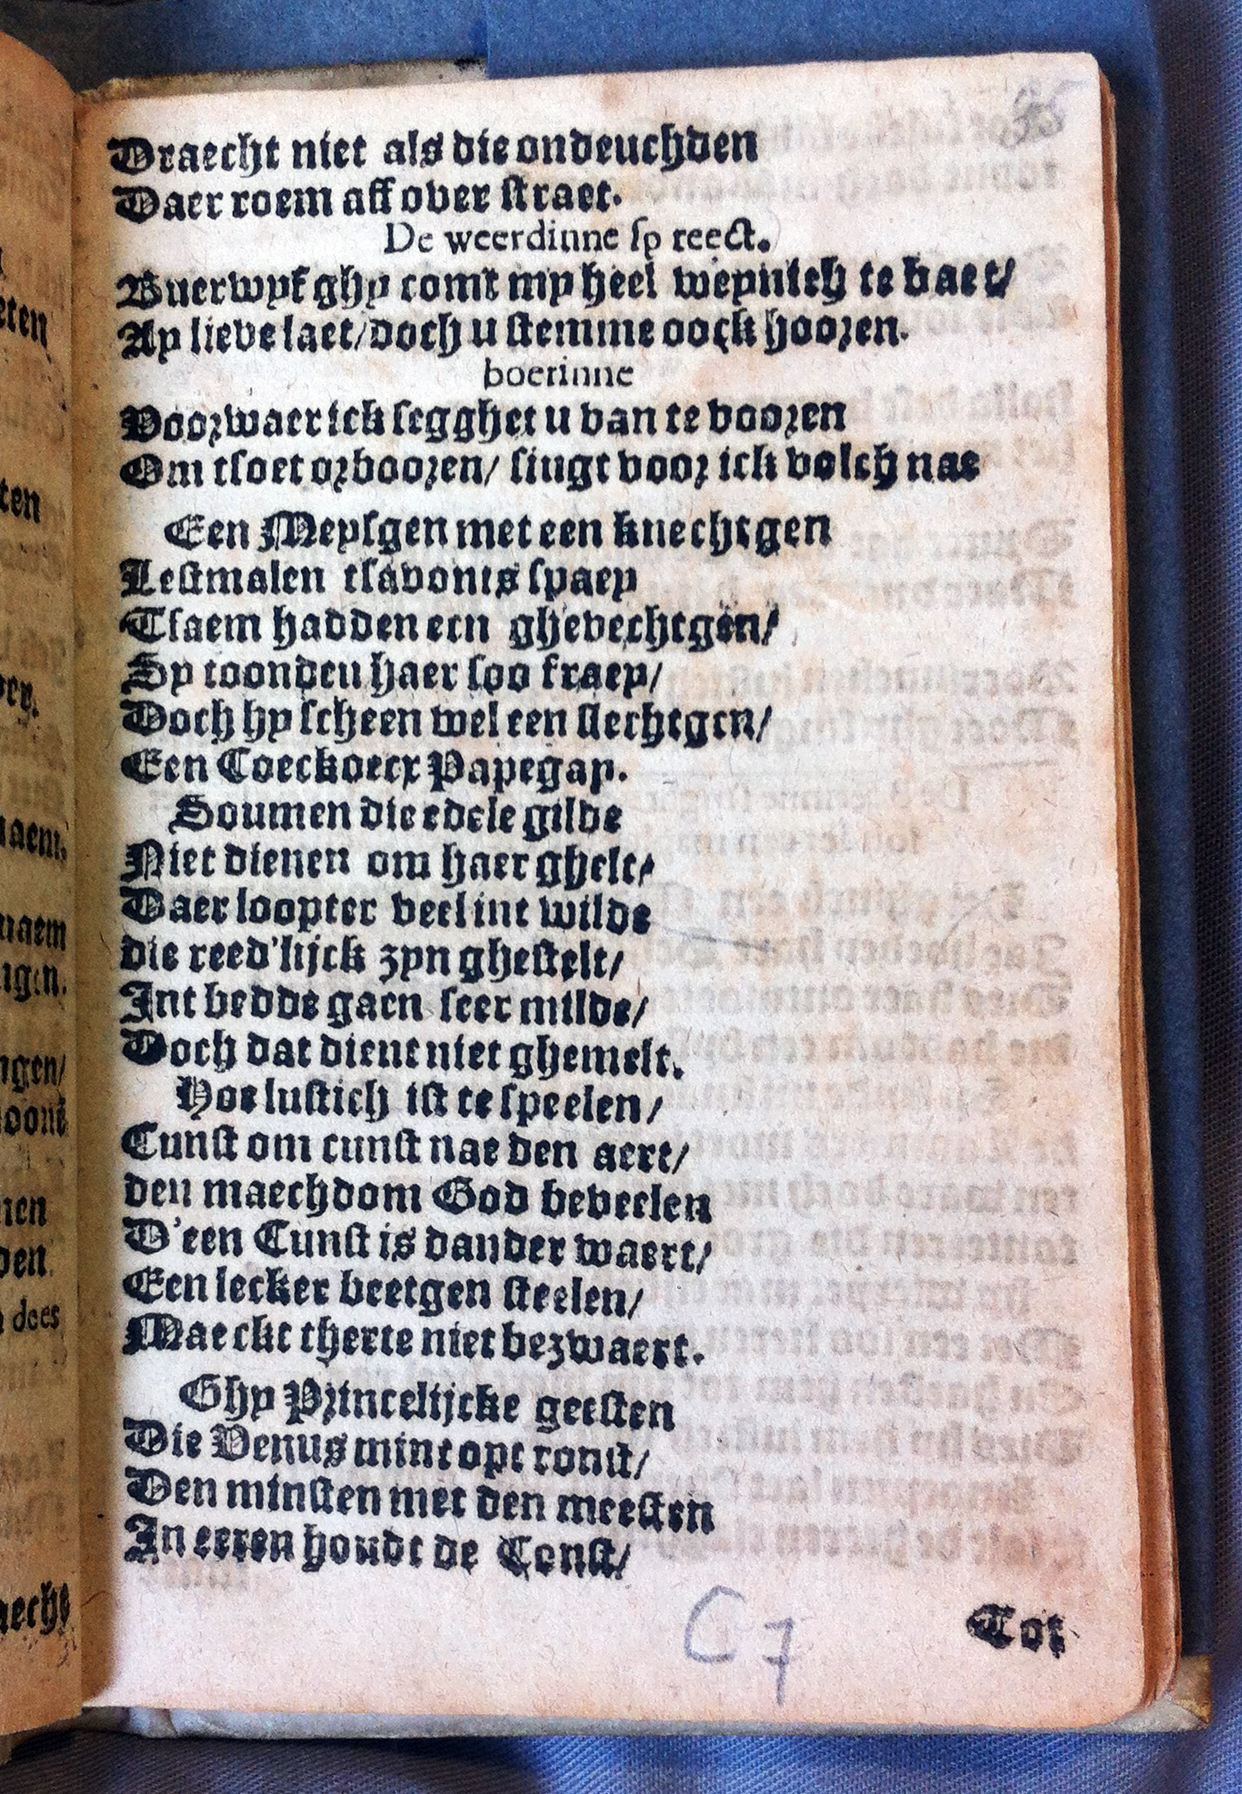 35
Draecht niet als die ondeuchden
Daer roem aff over straet.
De weerdinne spreect.
Buerwyf ghy comt my heel weynich te baet/
Ay lieve laet/doch u stemme oock hooren.
boerinne
Voorwaer ick segghet u van te vooren
Om tsoet orbooren/ singt voor ick volch nae
Een Meysgen met een knechtgen
Lestmalen tsavonts spaey
Tsaem hadden een ghevechtgen/
Sy toonden haer soo fraey/
Doch hy scheen wel een slechtgen/
Een Coeckoecx Papegay.
Soumen die edele gilde
Niet dienen om haer ghelt/
Daer loopter veel int wilde
die reed'lijck zyn ghestelt/
Int bedde gaen seer milde/
Doch dat dient niet ghemelt.
Hoe lustich ist te speelen/
Cunst om cunst nae den aert/
den maechdom God beveelen
D'een Cunst is dander waert/
Een lecker beetgen steelen/
Maeckt therte niet bezwaert.
Ghy Princelijcke geesten
Die Venus mint opt ronst/
Den minsten met den meesten
In eeren houdt de Const/
C 7
Tot